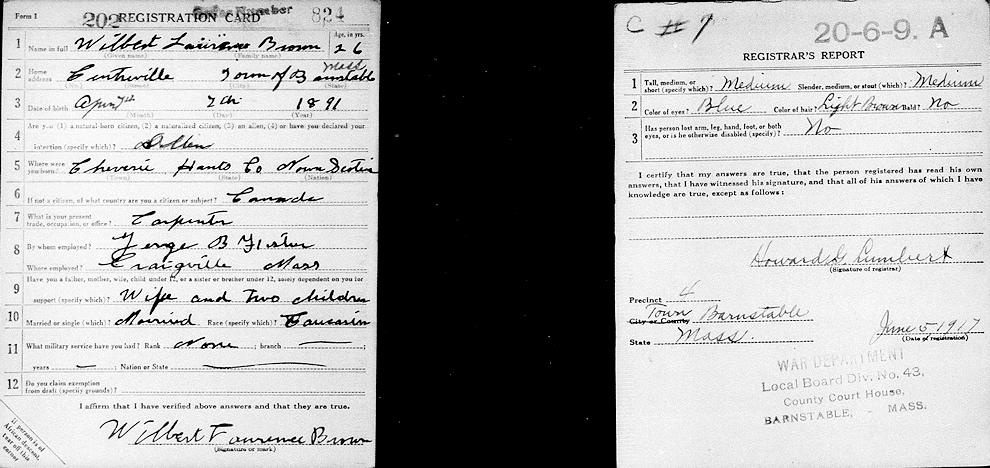 Form 1
202 REGISTRATION CARD Order Number 824
1 Name in full Wilbert Laurence Brown Age, in yrs. 26
(Given name) (Family name)
2 Home address Centreville Town of Barnstable Mass
(No.) (Street) (City) (State)
3 Date of birth April 7th 1891
(Month) (Day) (Year)
4 Are you (1) a natural-born citizen, (2) a naturalized citizen, (3) an alien, (4) or have you declared your
intention (specify which)? Allien
5 Where were you born? Cheverie Hants Co Nova Scotia
(Town) (State) (Nation)
6 If not a citizen, of what country are you a citizen or subject? Canada
7 What is your present trade, occupation, or office? Carpenter
8 By whom employed? B
Where employed? Craigville Mass
9 Have you a father, mother, wife, child under 12, or a sister or brother under 12, solely dependent on you for
support (specify which)? Wife and two children
10 Married or single (which)? Married Race (specify which)? Caucasian
11 What military service have you had? Rank None ; branch
years ; Nation or State
12 Do you claim exemption from draft (specify grounds)?
I affirm that I have verified above answers and that they are true.
Wilbert Laurence Brown
(Signature or mark)
If person is of
African descent,
tear off this
corner
C # 7
20-6-9. A
REGISTRAR'S REPORT
1 Tall, medium, or short (specify which)? Medium Slender, medium, or stout (which)? Medium
2 Color of eyes? Blue Color of hair? Light Brown Bald? No
3 Has person lost arm, leg, hand, foot, or both
eyes, or is he otherwise disabled (specify)? No
I certify that my answers are true, that the person registered has read his own
answers, that I have witnessed his signature, and that all of his answers of which I have
knowledge are true, except as follows:
Howard G. Lumbert
(Signature of registrar)
Precinct 4
City or County Town Barnstable
State Mass.
June 5, 1917
(Date of registration)
WAR DEPARTMENT
Local Board Div. No. 43,
County Court House,
BARNSTABLE, - MASS.